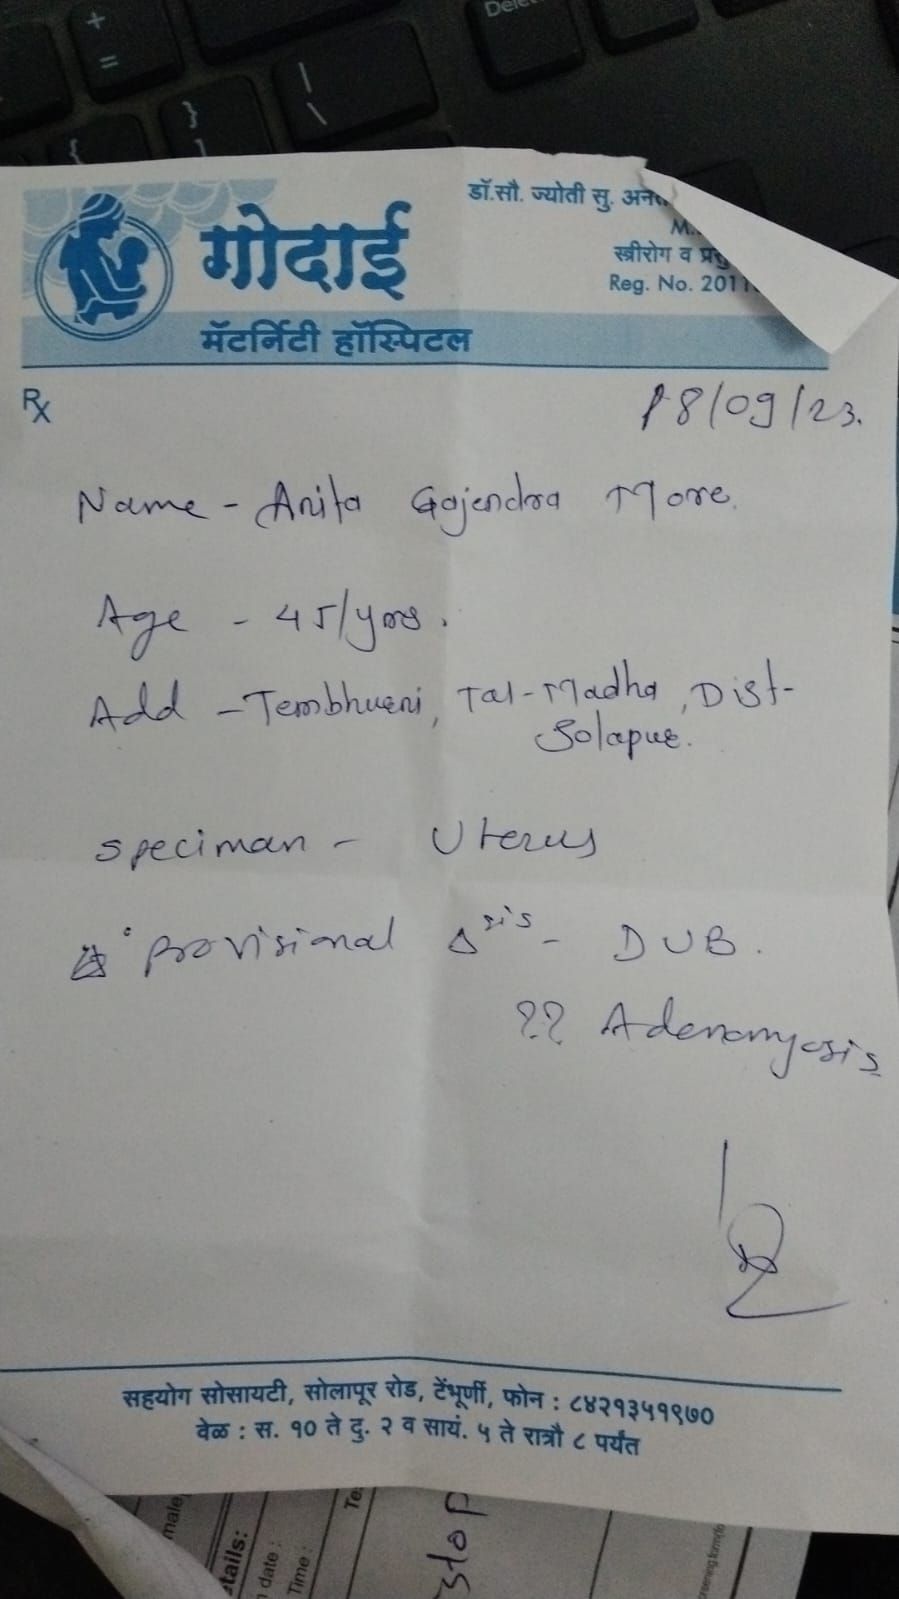 Delete
+
=
|
\
}
]
{
डॉ.सौ. ज्योती सु.
गोदाई
स्त्रीरोग व
Reg. No.
मॅटर्निटी हॉस्पिटल
Rx
18/09/23.
Name - Anita Gajendra More.
Age - 45/yrs.
Add - Tembhurni, Tal-Madha, Dist-
Solapur.
speciman - Uterus
provisional Δsis - DUB.
?? Adenomyosis
सहयोग सोसायटी, सोलापूर रोड, टेंभूर्णी, फोन : ८४२१३५१९७०
वेळ : स. १० ते दु. २ व सायं. ५ ते रात्रौ ८ पर्यंत
male
tails:
date :
Time :
stop